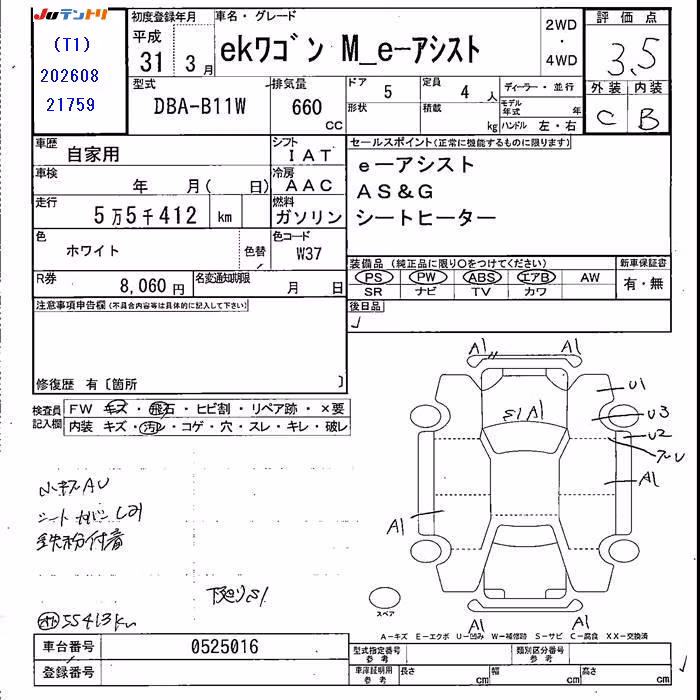 Juテントリ
(T1)
202608
21759
初度登録年月
平成
31 3月
車名・グレード
ekワゴン M_e-アシスト
2WD
・
4WD
評価点
3.5
型式
DBA-B11W
排気量
660
cc
ドア
5
定員
4人
形状
積載
kg
ディーラー・並行
モデル年式 年
ハンドル 左・右
外装 内装
C B
車歴
自家用
シフト
IAT
車検
年 月( 日)
冷房
AAC
走行
5万5千412 km
燃料
ガソリン
色
ホワイト
色替
色コード
W37
R券
8,060円
名変通知期限
月 日
セールスポイント(正常に機能するものに限ります)
e-アシスト
AS&G
シートヒーター
装備品(純正品に限り○をつけてください)
PS PW ABS エアB AW
SR ナビ TV カワ
新車保証書
有・無
注意事項申告欄(不具合内容等は具体的に記入して下さい)
後日品
修復歴 有〔箇所 〕
検査員記入欄
FW キズ・飛石・ヒビ割・リペア跡・×要
内装 キズ・汚レ・コゲ・穴・スレ・キレ・破レ
A1 A1
U1
U3
U2
S1 A1
A1
A1
小キズAU
シート カバン シミ
鉄粉付着
下廻りS1
55413km
スペア
A1 A1
A-キズ E-エクボ U-凹み W-補修跡 S-サビ C-腐食 XX-交換済
車台番号
0525016
登録番号
型式指定番号
参考
類別区分番号
参考
車庫証明用
参考
長さ cm
幅 cm
高さ cm